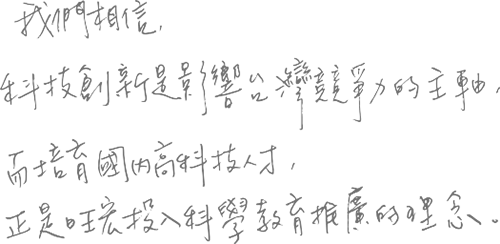 我們相信,
科技創新是影響台灣競爭力的主軸,
而培育國內高科技人才,
正是旺宏投入科學教育推廣的理念。